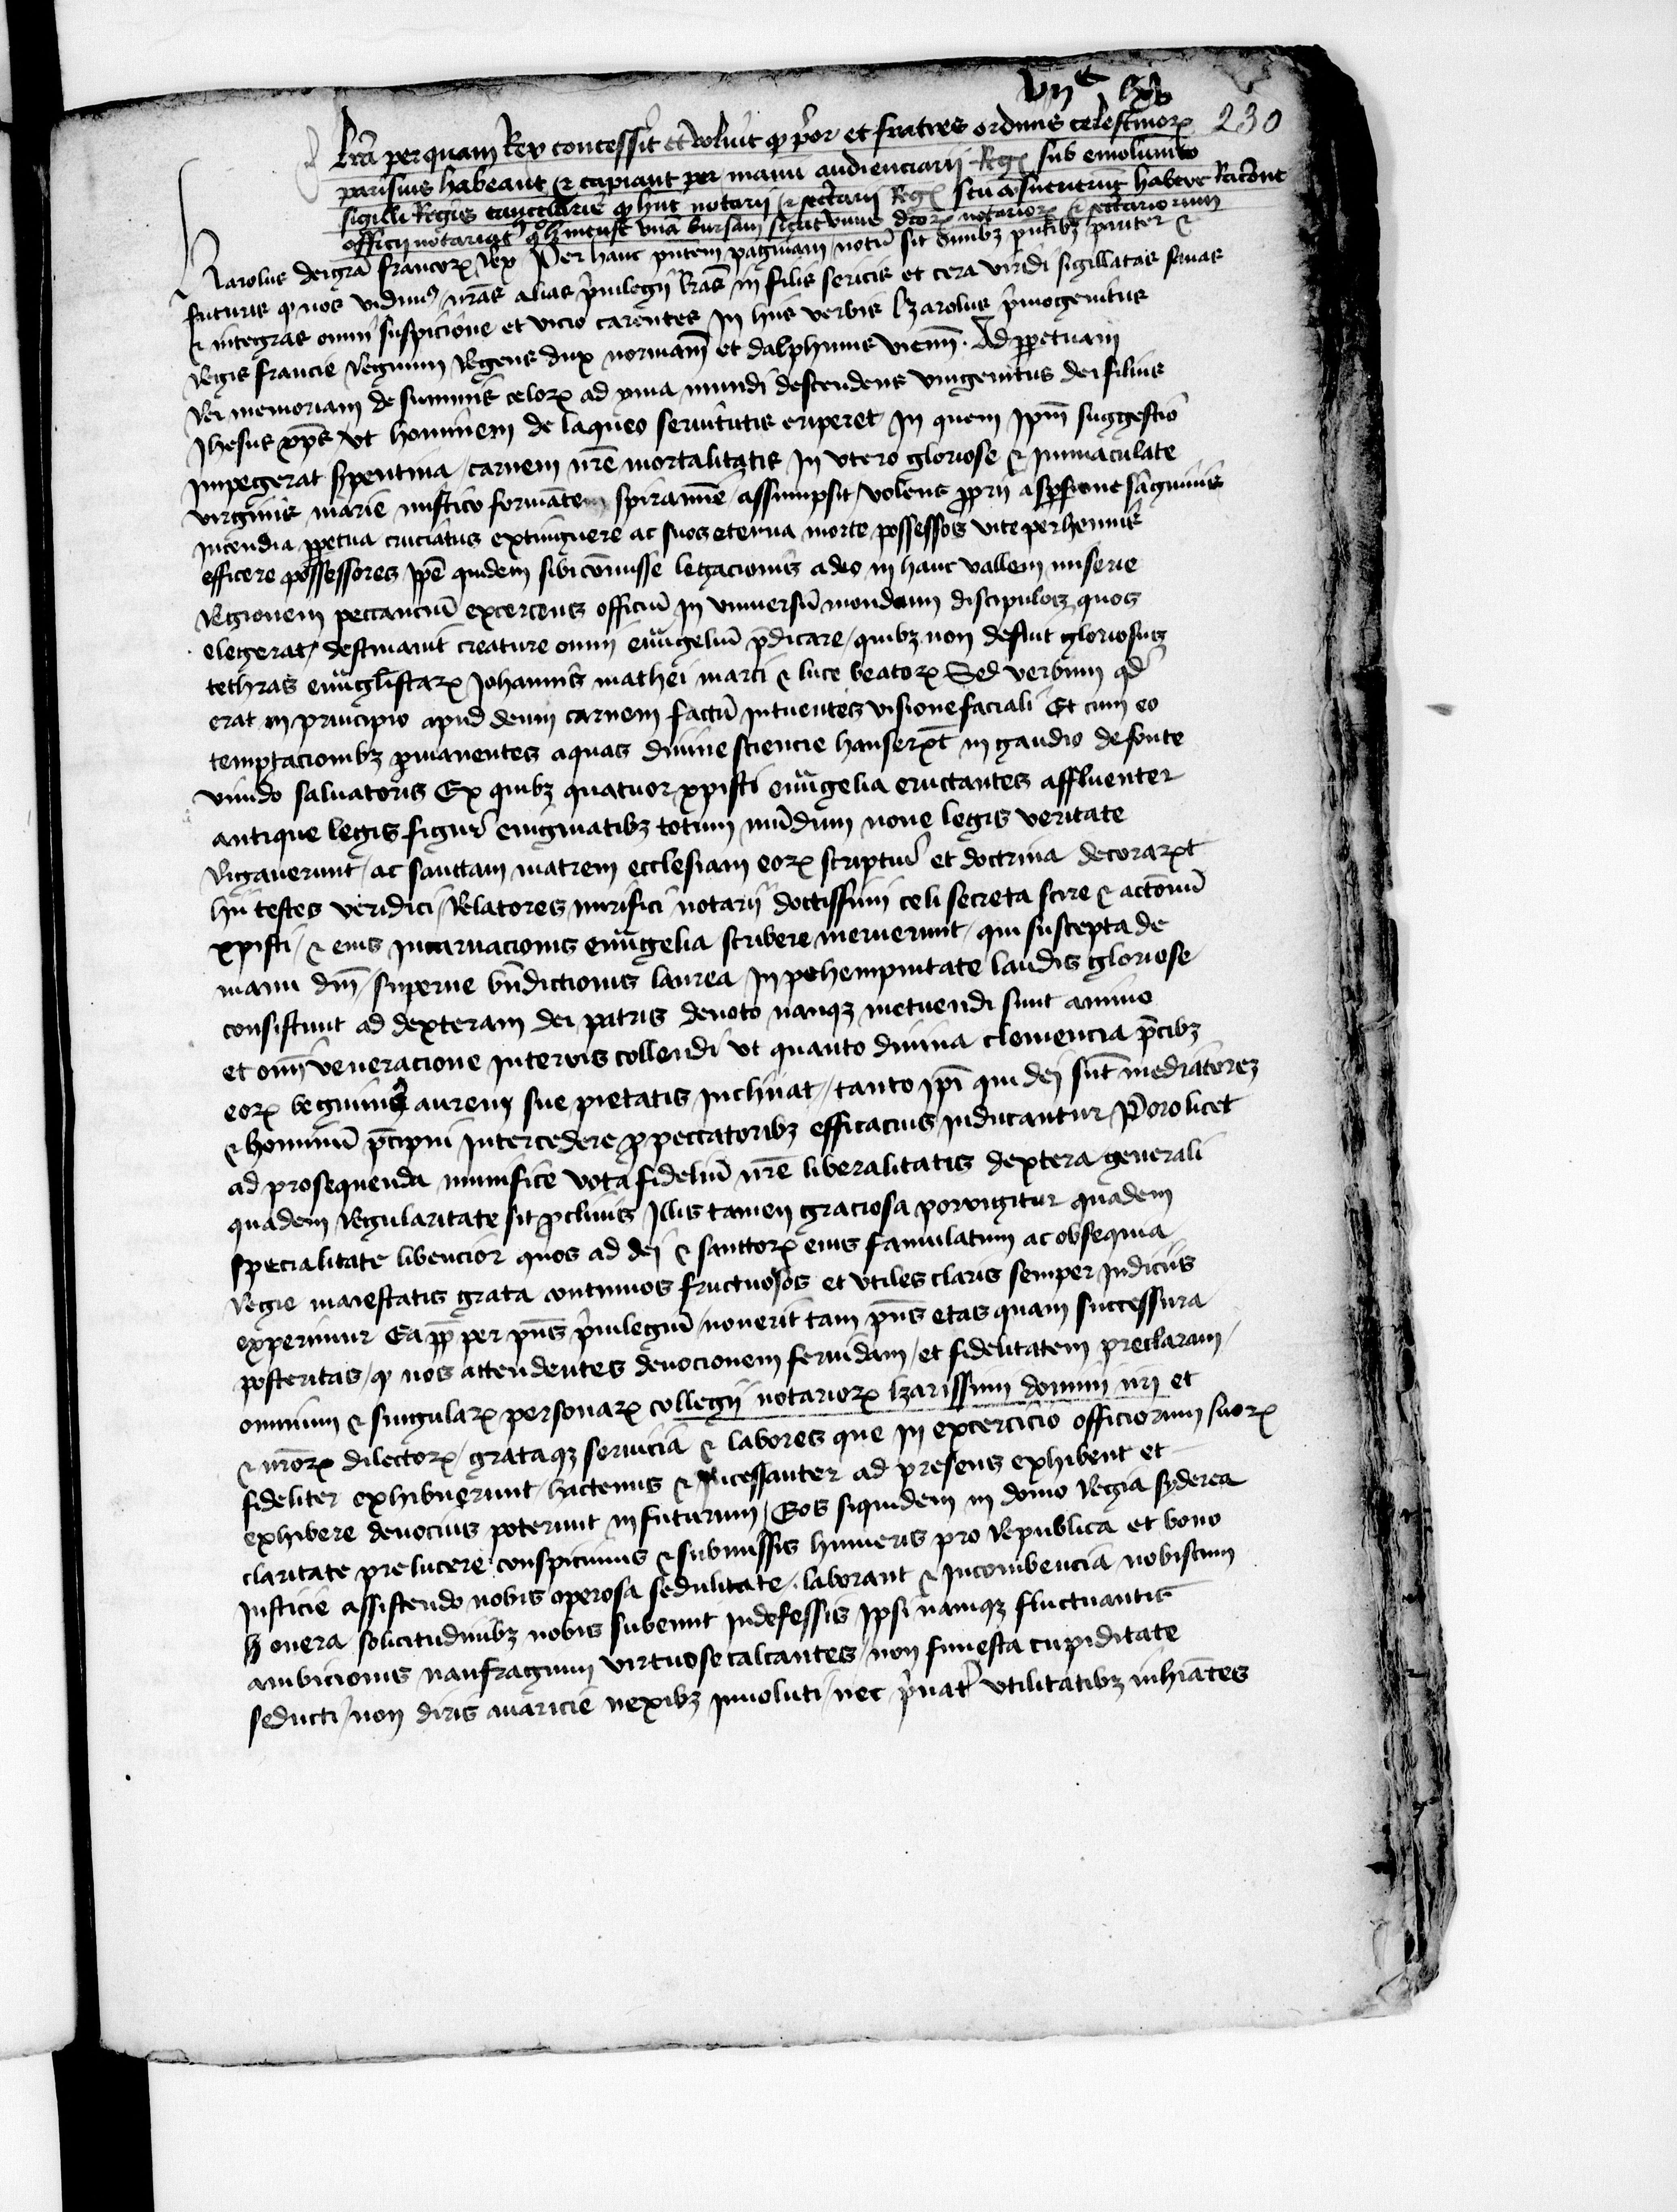 vijc lxv
230
Lrã per quam Rex concessit et voluit qꝫ p̃or et fratres ordinis celestinoꝝ
parisius habeant ⁊ capiant per manũ audienciarij Reg̃ sub emolumẽto
sigilli Regis cancellarie qꝫ hñt notarij ⁊ secretarij Reg̃ seu consueuerũt habere Racõne
officij notariat⁹ qꝫlꝫ mense vnã bursam sicut vnus dcoꝝ notarioꝝ ⁊ secretariorum
Karolus dei grã francoꝝ Rex Per hanc pñtem paginam notũ sit õnibꝫ pñtibꝫ pariter ⁊
futuris qꝫ nos vidim⁹ nrãs alias p̃uilegij lrãs in filis sericis et cera viridi sigillatas sanas
⁊ integras omni suspicione et vicio carentes in hiis verbis Karolus p̃mogenitus
Regis francie Regnum Regens dux normanñ et dalphinus vienñ. Ad ꝑpetuam
Rei memoriam de summis celoꝝ ad yma mundi descendens vnigenitus dei filius
Jhesus xp̃s vt hominem de laqueo seruitutis eriperet In quem ipm̃ suggestio
impegerat serpentina / carnem nrẽ mortalitatis In vtero gloriose ⁊ Immaculate
virginis marie mistico formatem spiramine assumpsit / volens ꝓprij aspersione sãguinis
incendia ꝑpetua cruciatus extinguere ac suos eterna morte possessos vite perhennis
efficere possessores Ip̃e quidem sibi cõmisse legacionis a deo in hanc vallem miserie
Regionem peccanciũ excercens officiũ In vniuersũ mondum discipulos quos
elegerat / destinauit creature omni euãgeliũ p̃dicare / quibꝫ non defuit gloriosus
tethras euãglistaꝝ Johannis mathei marci ⁊ luce beatoꝝ Sed verbum qd̃
erat in principio apud deum carnem factũ intuentes visione faciali Et cum eo
temptacionibꝫ ꝑmanentes aquas diuine sciencie hauserũt in gaudio de fonte
viuido saluatoris Ex quibꝫ quatuor xpisti euãgelia eructantes affluenter
antique legis figur̃ enigmatibꝫ totum mũdum noue legis veritate
Rigauerunt / ac sanctam matrem ecclesiam eoꝝ scriptur̃ et doctrina decorarũt
hij testes veridici / Relatores mirifici notarij doctissimi celi secreta scire ⁊ actonũ
xpisti / ⁊ eius Incarnacionis euãgelia scribere meruerunt / qui suscepta de
manu dñi / superne bñdictionis laurea In pehempnitate laudis gloriose
consistunt ad dexteram dei patris deuoto nanqꝫ metuendi sunt animo
et omni veneracione Interuis collendi vt quanto diuina clemencia p̃cibꝫ
eoꝝ begnini⁹ aurem sue pietatis inclinat / tanto ipi qui dei sũt mediatores
⁊ hominũ p̃cipui intercedere ꝓ peccatoribꝫ efficacius inducantur Porro licet
ad prosequenda munifice vota fideliũ nrẽ liberalitatis dextera generali
quadem Regularitate sit ꝓcliuis Illis tamen graciosa porrigitur quadem
specialitate libencior quos ad dei ⁊ sanctoꝝ eius famulatum ac obsequia
Regie maiestatis grata continuos fructuosos et vtiles claris semper indiciis
experimur Ea ꝓpt per pñs p̃uilegiũ / nouerit tam pñs etas quam successura
posteritas / qꝫ nos attendentes deuocionem feruidam / et fidelitatem preclaram /
omnium ⁊ singulaꝝ personaꝝ collegij notarioꝝ karissimi domini nri et
⁊ nr̃oꝝ dilectoꝝ / grataqꝫ seruicia ⁊ labores que in excercicio officiorum suoꝝ
fideliter exhibuerunt / hactenus ⁊ incessanter ad presens exhibent et
exhibere deuocius poterunt in futurum / Eos siquidem in domo Regia syderea
claritate prelucere conspicimus ⁊ submissis humeris pro Republica et bono
iusticie assistendo nobis operosa sedulitate / laborant ⁊ incombencia nobiscum
hꝫ onera solicitudinibꝫ nobis subeunt indefessis ipsi namqꝫ fluctuantis
ambicionis naufragium virtuose calcantes / non funesta cupiditate
seducti / non diris auaricie nexibꝫ inuoluti / nec p̃uat̃ vtilitatibꝫ inhiãtes